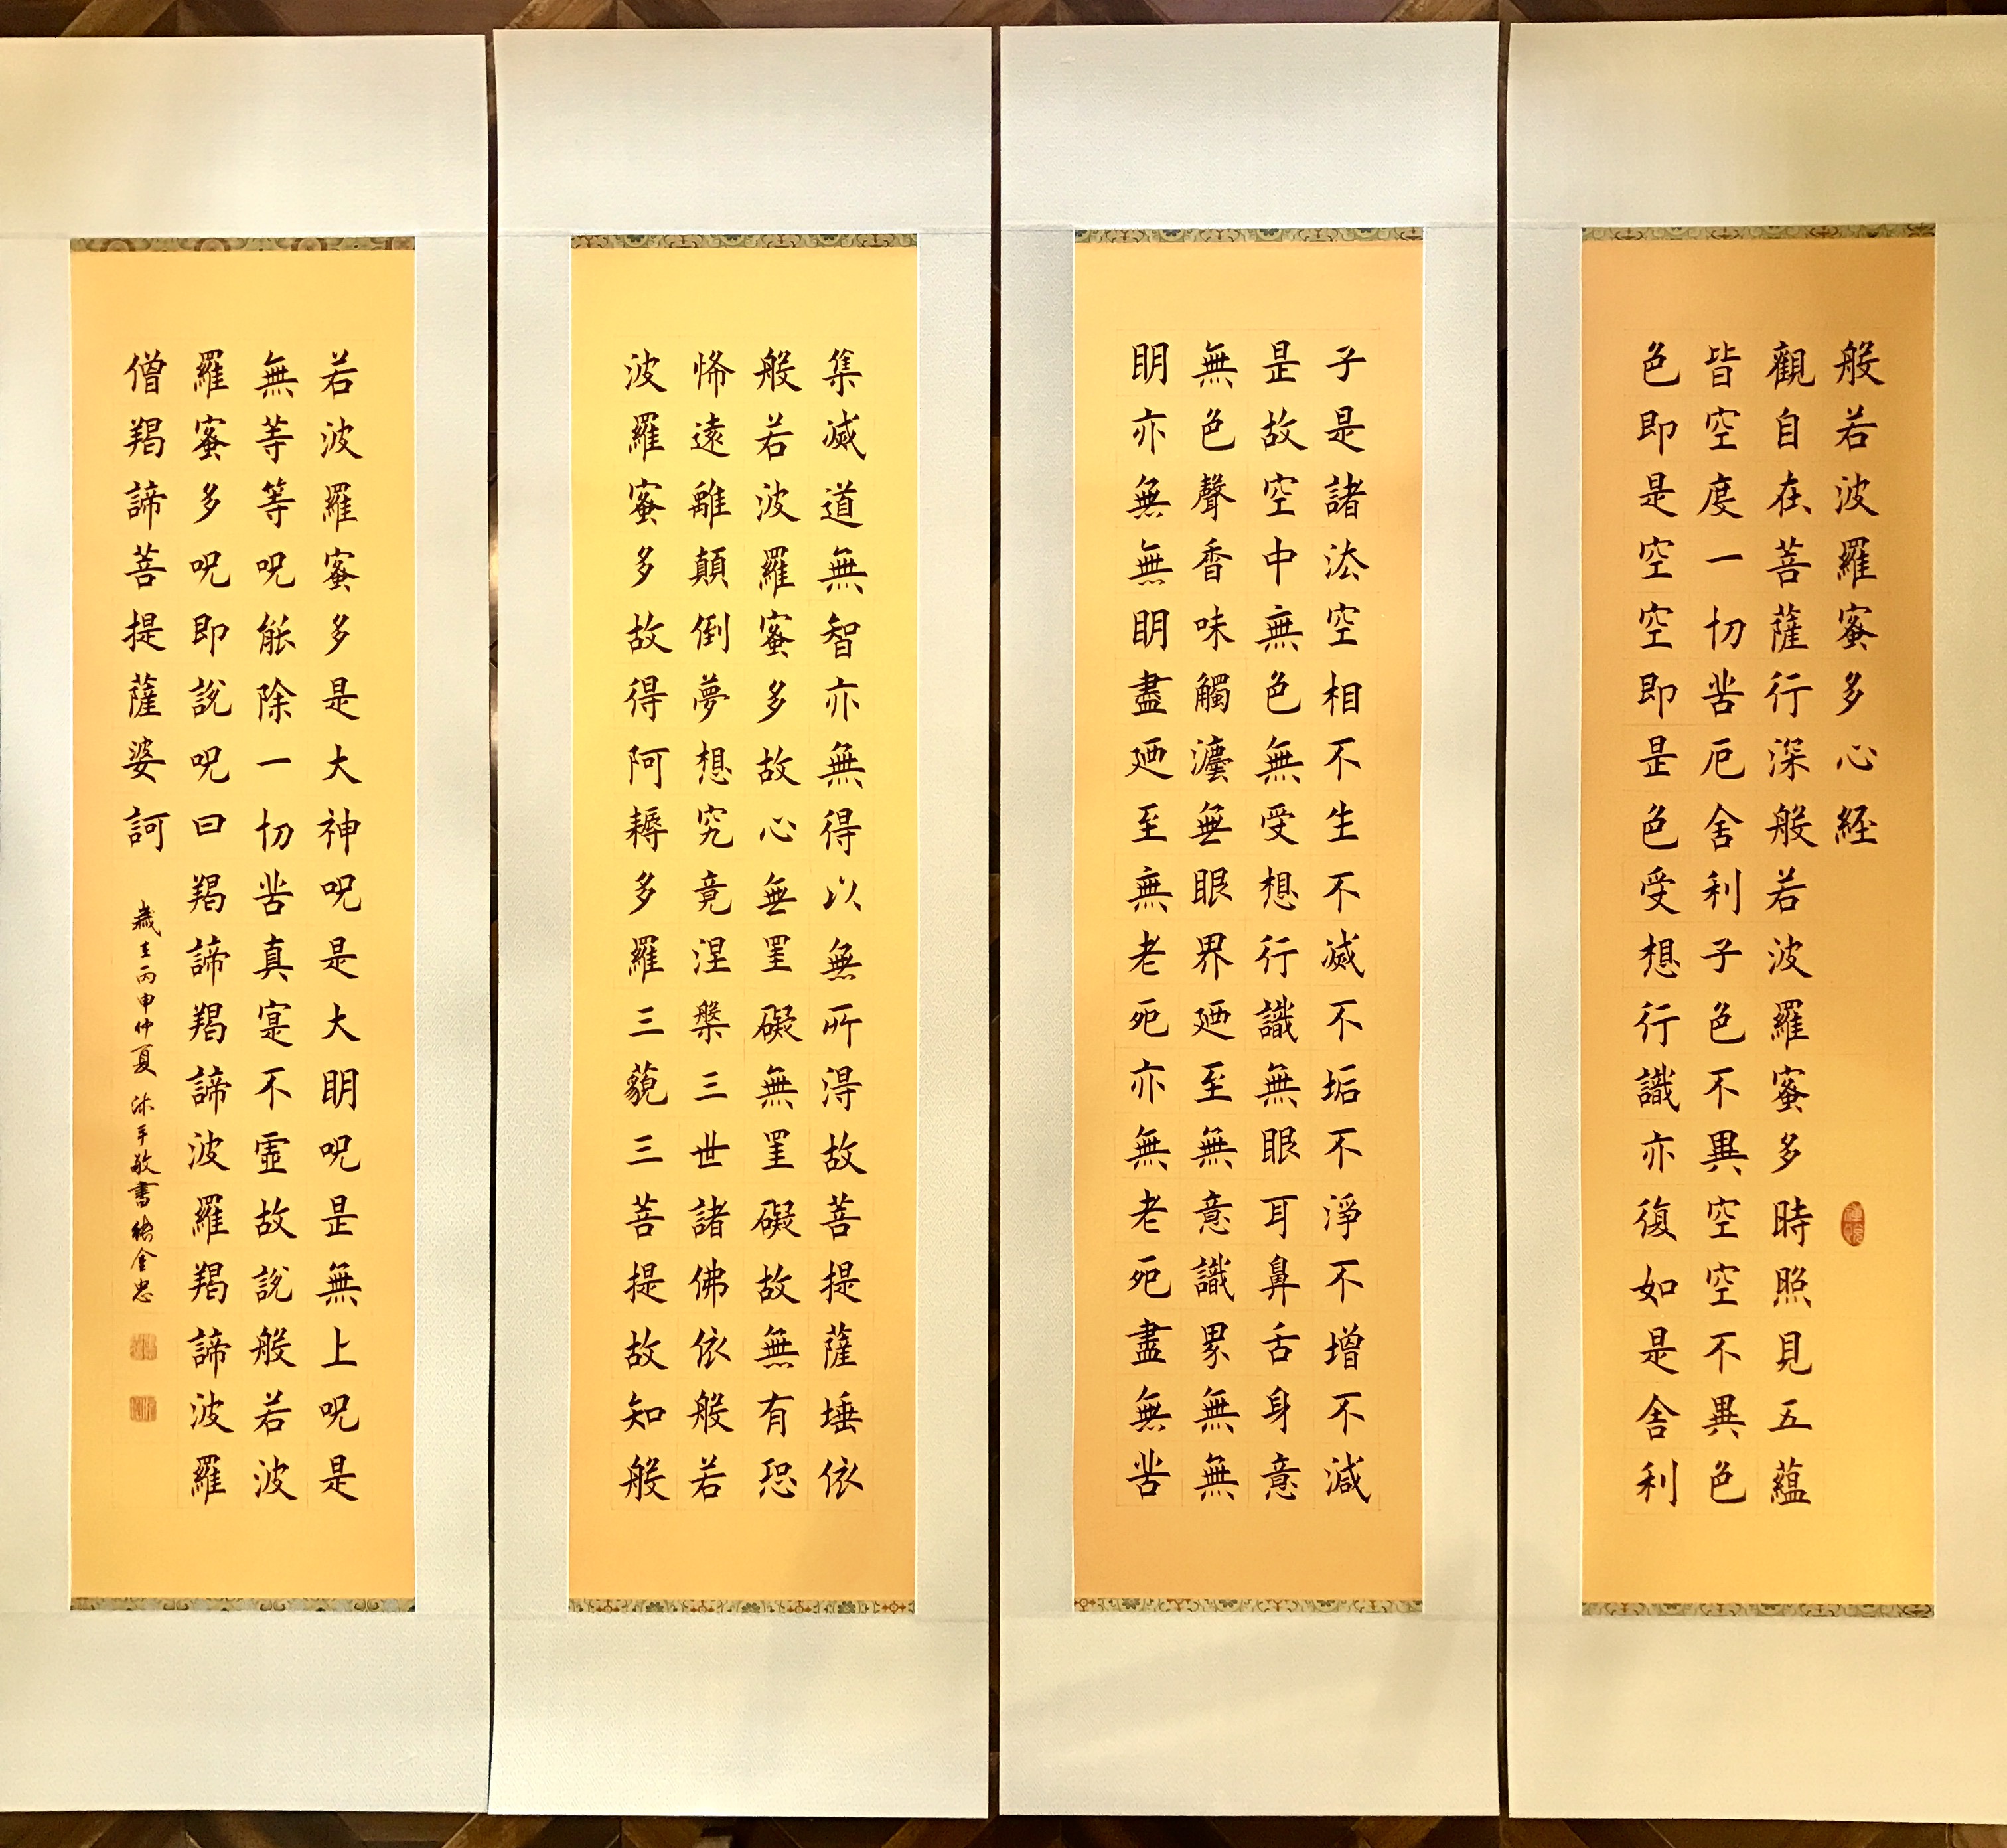 般若波羅蜜多心經
觀自在菩薩行深般若波羅蜜多時照見五蘊
皆空度一切苦厄舍利子色不異空空不異色
色即是空空即是色受想行識亦復如是舍利
子是諸法空相不生不滅不垢不淨不增不減
是故空中無色無受想行識無眼耳鼻舌身意
無色聲香味觸灋無眼界廼至無意識界無無
明亦無無明盡廼至無老死亦無老死盡無苦
集滅道無智亦無得以無所得故菩提薩埵依
般若波羅蜜多故心無罣礙無罣礙故無有恐
怖遠離顛倒夢想究竟涅槃三世諸佛依般若
波羅蜜多故得阿耨多羅三藐三菩提故知般
若波羅蜜多是大神呪是大明呪是無上呪是
無等等呪能除一切苦真寔不虛故說般若波
羅蜜多呪即說呪曰羯諦羯諦波羅羯諦波羅
僧羯諦菩提薩婆訶
歲在丙申仲夏沐手敬書張金忠